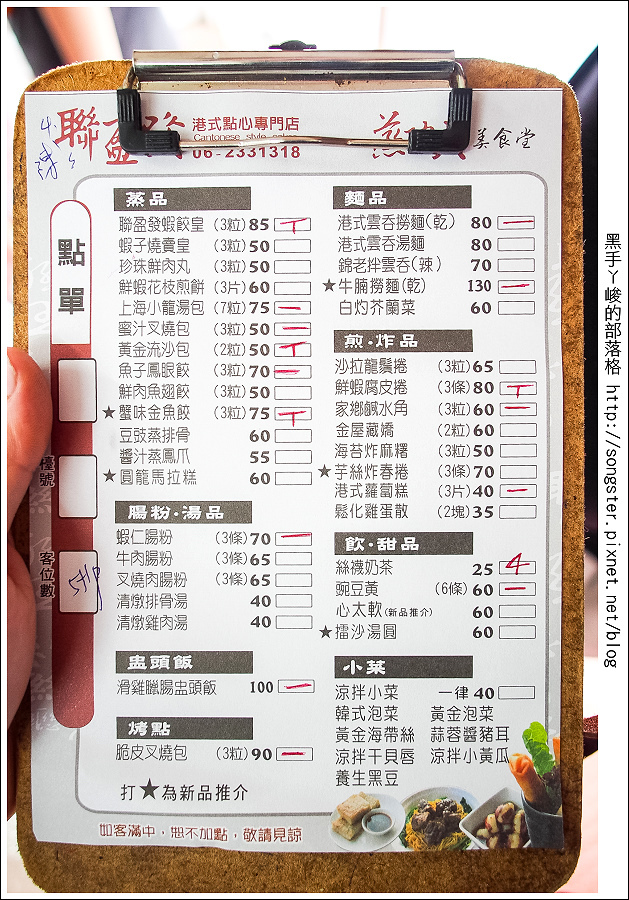 聯盈發 港式點心專門店
Cantonese style
06-2331318
美食堂
點單
檯號
客位數
蒸品
聯盈發蝦餃皇 (3粒) 85
蝦子燒賣皇 (3粒) 50
珍珠鮮肉丸 (3粒) 50
鮮蝦花枝煎餅 (3片) 60
上海小龍湯包 (7粒) 75
蜜汁叉燒包 (3粒) 50
黃金流沙包 (2粒) 50
魚子鳳眼餃 (3粒) 70
鮮肉魚翅餃 (3粒) 50
★蟹味金魚餃 (3粒) 75
豆豉蒸排骨 60
醬汁蒸鳳爪 55
★圓籠馬拉糕 60
腸粉·湯品
蝦仁腸粉 (3條) 70
牛肉腸粉 (3條) 65
叉燒肉腸粉 (3條) 65
清燉排骨湯 40
清燉雞肉湯 40
盅頭飯
滑雞臘腸盅頭飯 100
烤點
脆皮叉燒包 (3粒) 90
打★為新品推介
如客滿中，恕不加點，敬請見諒
麵品
港式雲吞撈麵(乾) 80
港式雲吞湯麵 80
錦老拌雲吞(辣) 70
★牛腩撈麵(乾) 130
白灼芥蘭菜 60
煎·炸品
沙拉龍鬚捲 (3粒) 65
鮮蝦腐皮捲 (3條) 80
家鄉鹹水角 (3粒) 60
金屋藏嬌 (2粒) 60
海苔炸麻糬 (3粒) 50
★芋絲炸春捲 (3條) 70
港式蘿蔔糕 (3片) 40
鬆化雞蛋散 (2塊) 35
飲·甜品
絲襪奶茶 25 4
豌豆黃 (6條) 60
心太軟(新品推介) 60
★擂沙湯圓 60
小菜
涼拌小菜 一律 40
韓式泡菜 黃金泡菜
黃金海帶絲 蒜蓉醬豬耳
涼拌干貝唇 涼拌小黃瓜
養生黑豆
黑手ㄚ峻的部落格 http://songster.pixnet.net/blog